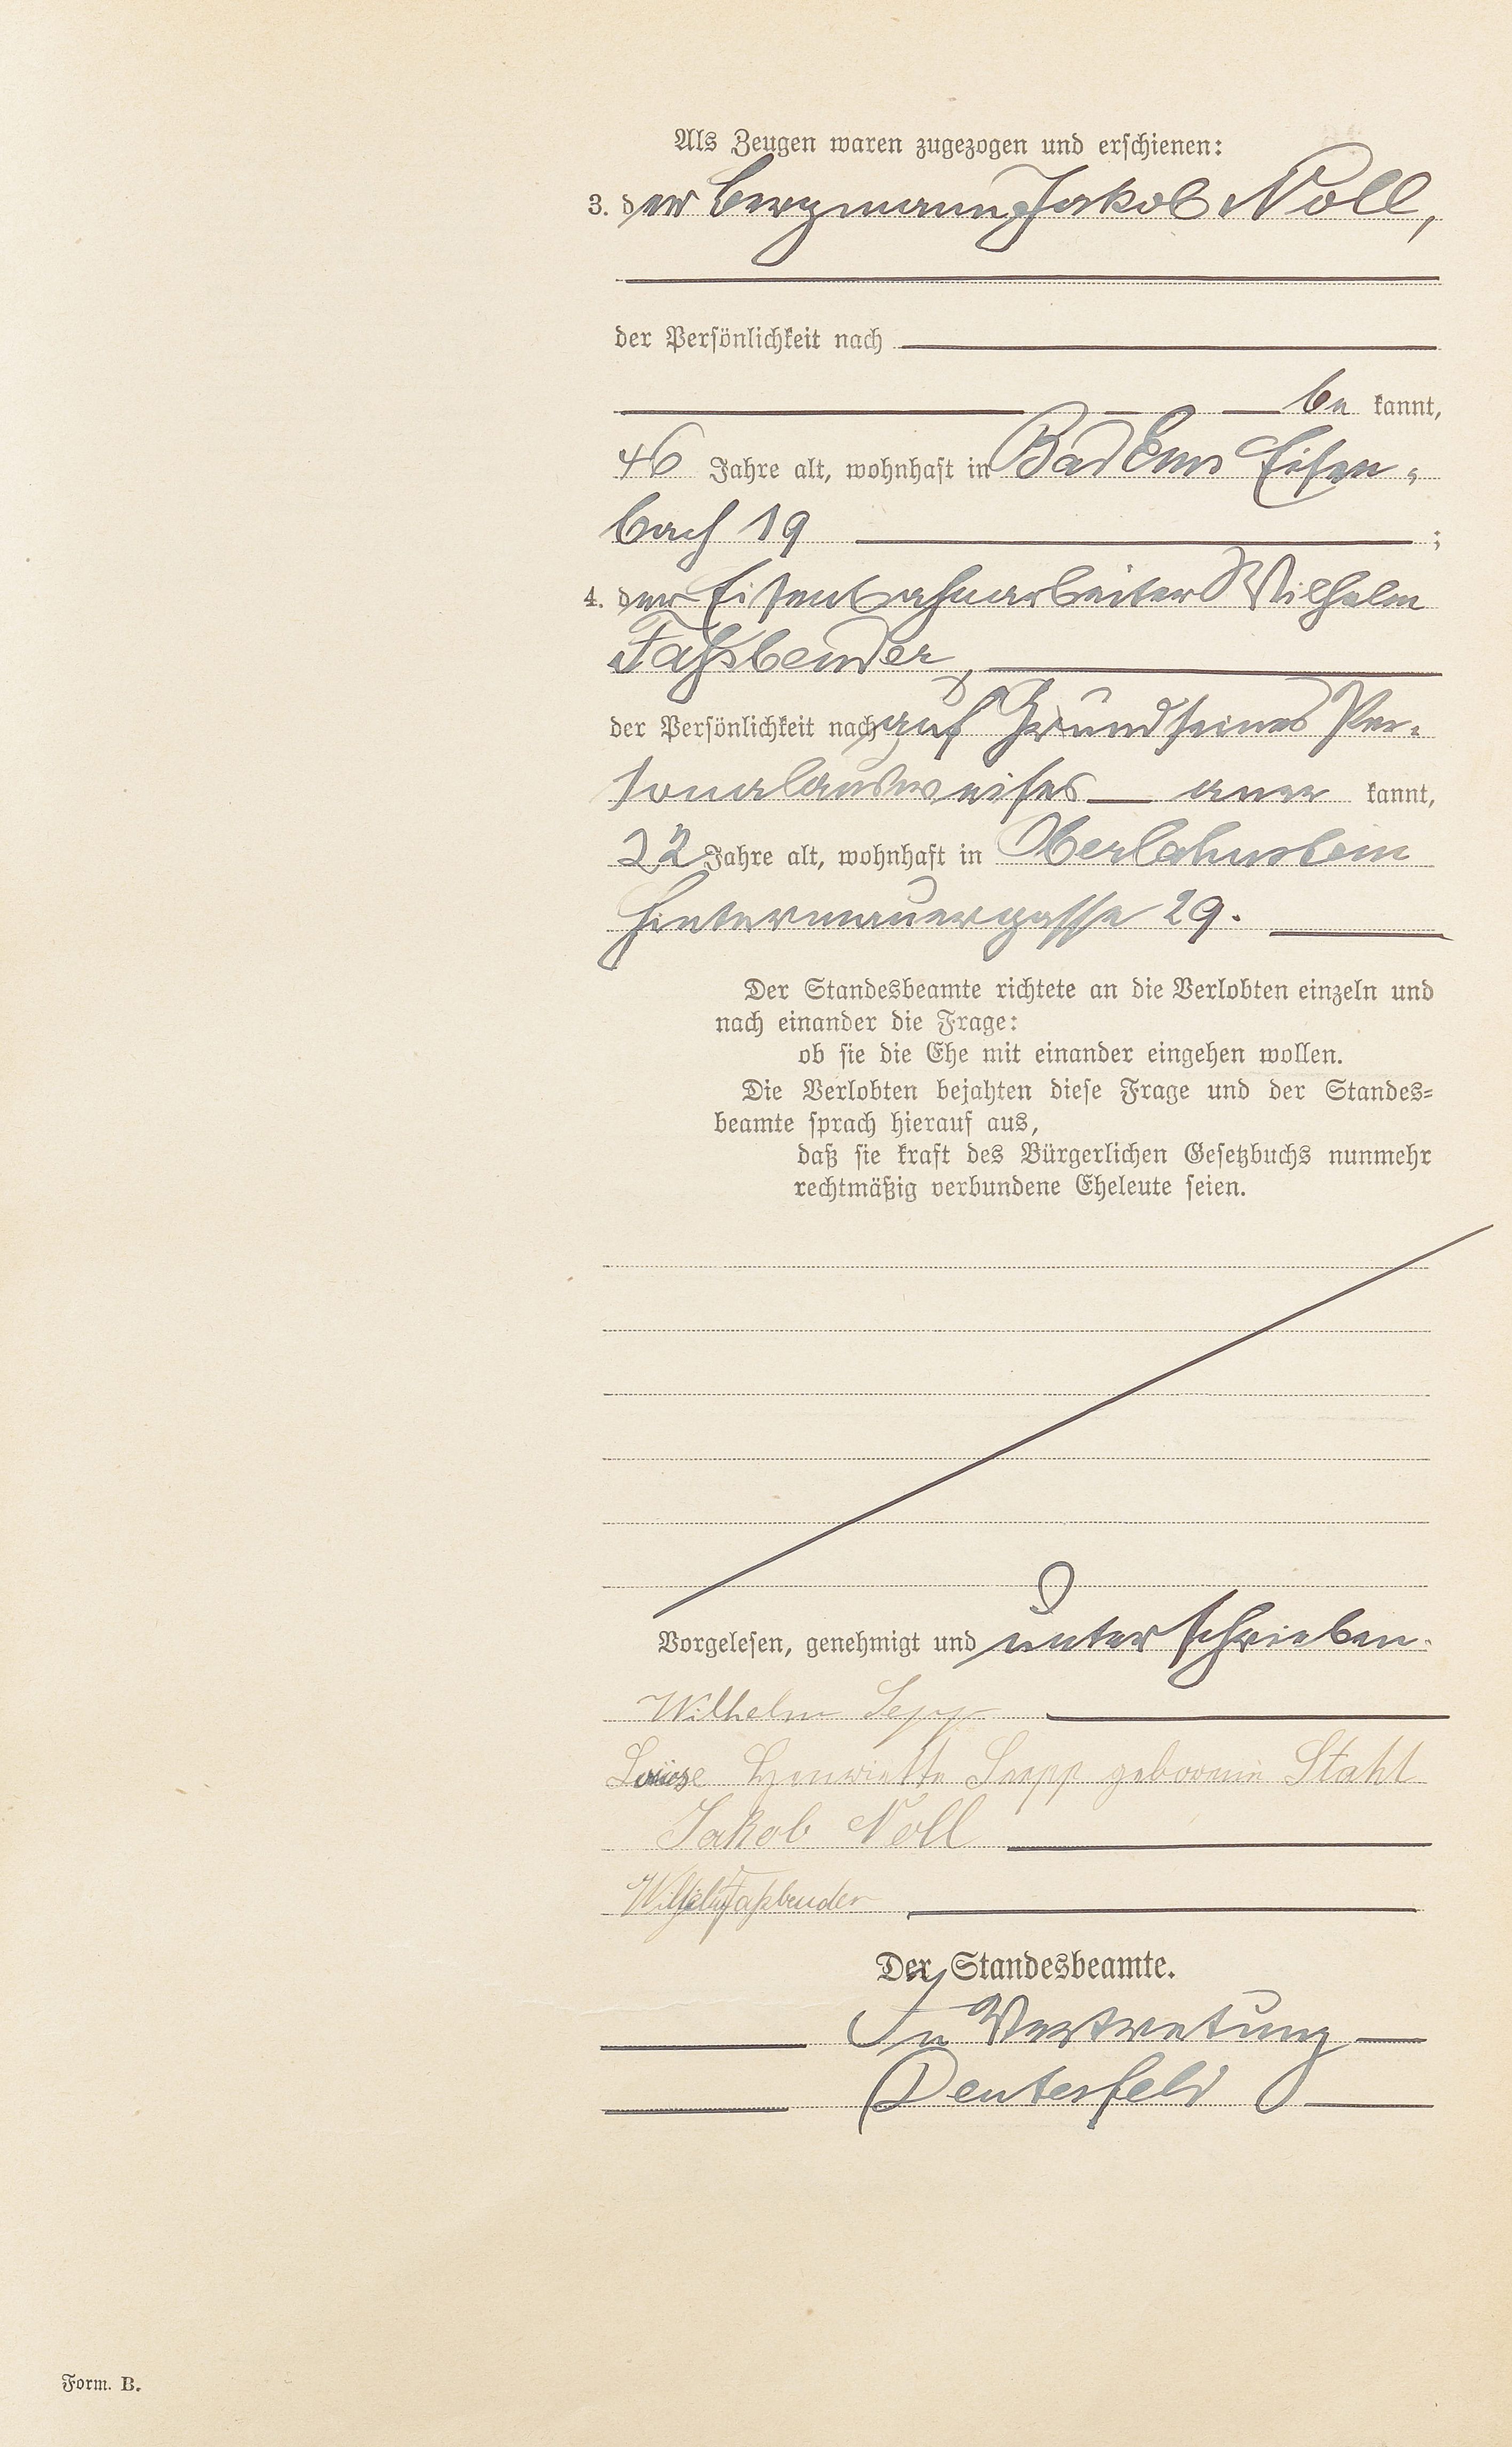 Als Zeugen waren zugezogen und erschienen:
3. der Bergmann Jakob Noll,
der Persönlichkeit nach
be kannt,
46 Jahre alt, wohnhaft in Bad Ems Eisen-
bach 19 ;
4. der Eisenbahnarbeiter Wilhelm
Faßbender,
der Persönlichkeit nach auf Grund seines Per-
sonalausweises aner kannt,
22 Jahre alt, wohnhaft in Oberlahnstein
Hintermauergasse 29.
Der Standesbeamte richtete an die Verlobten einzeln und
nach einander die Frage:
ob sie die Ehe mit einander eingehen wollen.
Die Verlobten bejahten diese Frage und der Standes-
beamte sprach hierauf aus,
daß sie kraft des Bürgerlichen Gesetzbuchs nunmehr
rechtmäßig verbundene Eheleute seien.
Vorgelesen, genehmigt und unterschrieben.
Wilhelm Sepp
Louise Henriette Sepp geborene Stahl
Jakob Noll
Wilhelm Faßbender
Der Standesbeamte.
In Vertretung
Deutesfeld
Form. B.